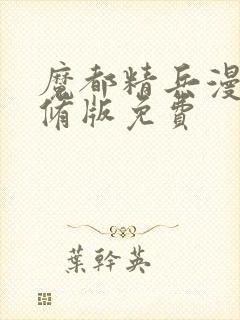 魔都精兵漫
脩版免費
葉幹英